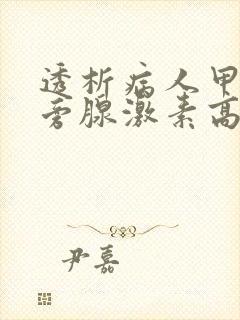 透析病人甲
旁腺激素高
尹嘉